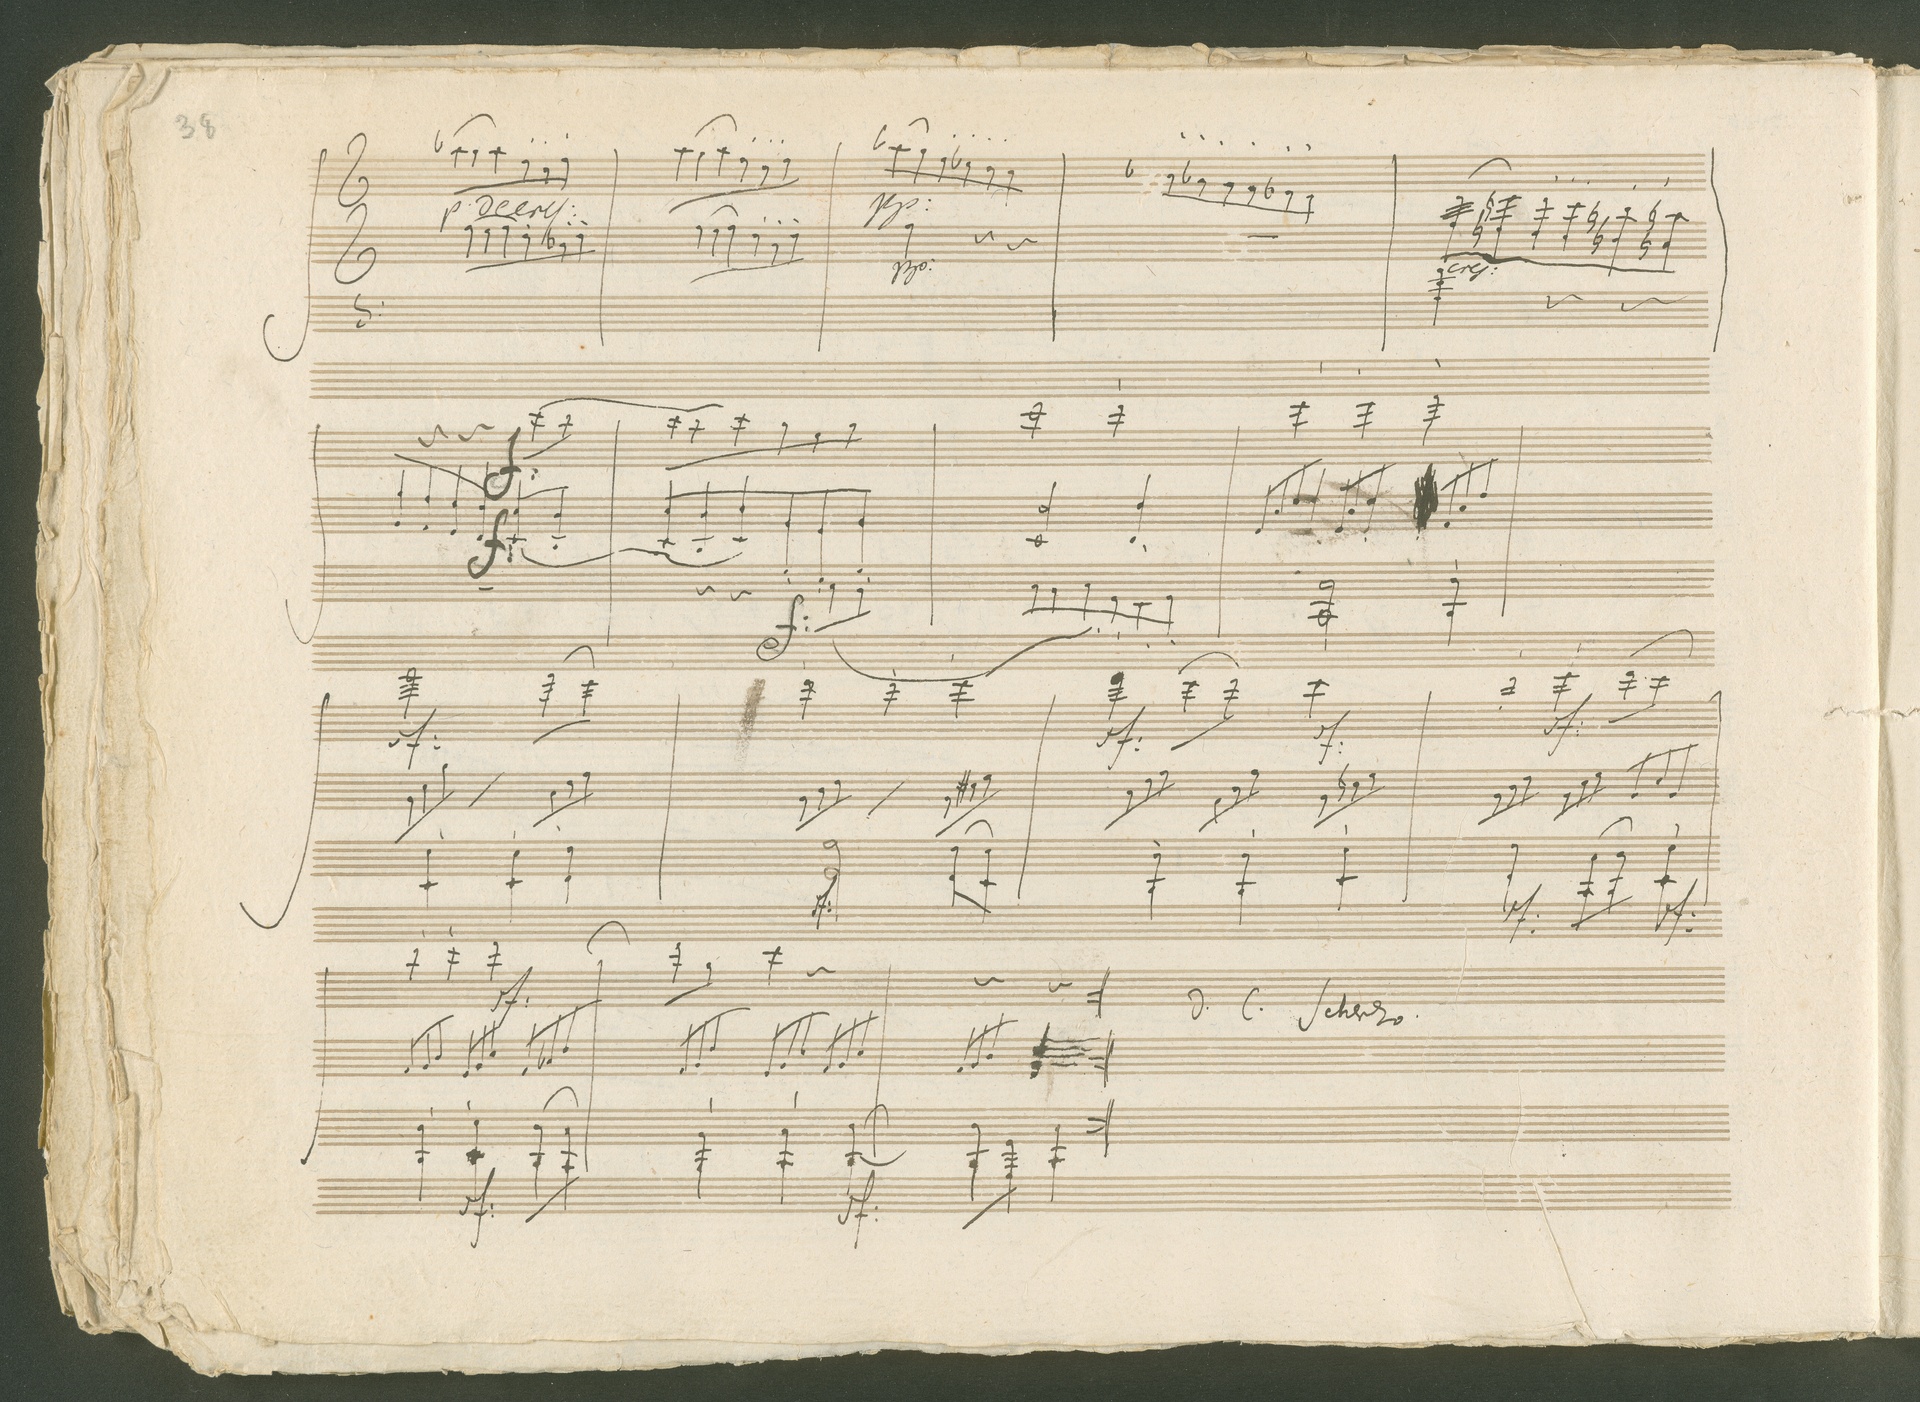 38
p: Decresc: pp:
pp: cres:
f:
f:
f:
sf: sf: sf: sf:
sf: sf: sf:
sf: D. C. Scherzo.
sf: sf: